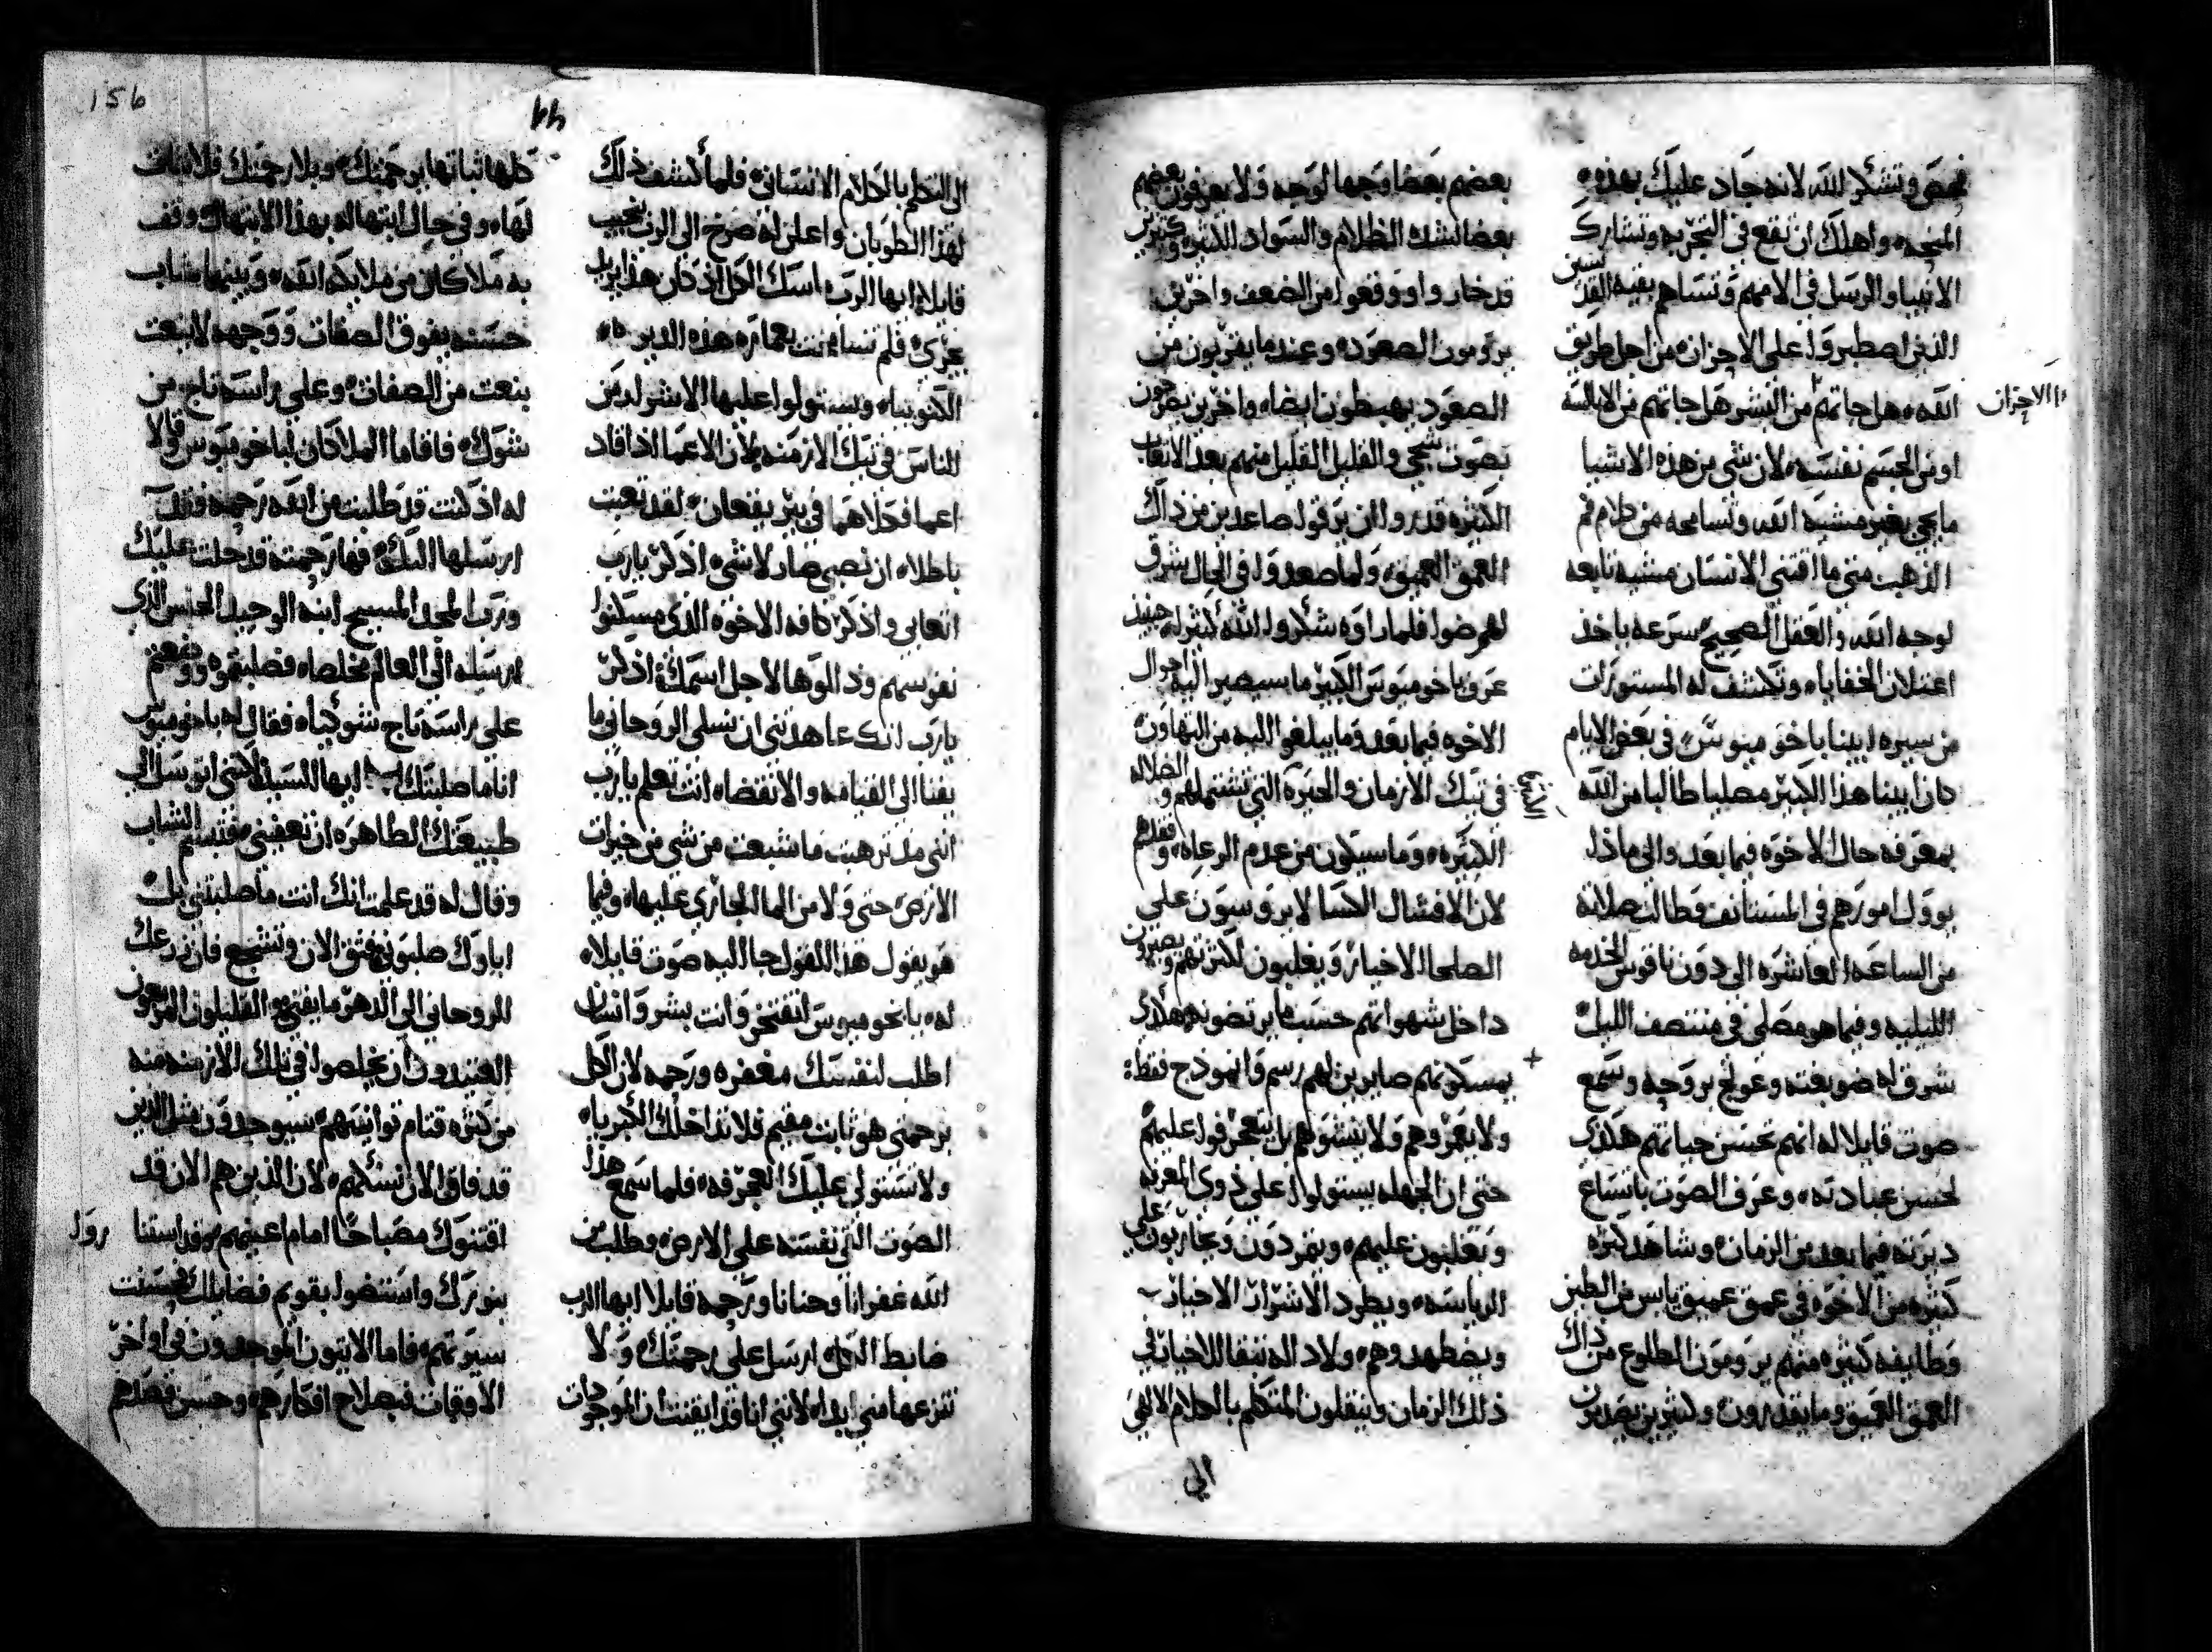 فحص وتشكر لله لانه جاد عليك بهذه
المنحه واهلك ان تقع في التجربه وتشارك
الانبيا والرسل في الامهم وتساهم بقيه القديسين
الذين اصطبروا على الاحزان من اجل طريق
الله هل جاتهم من البشر هل جاتهم من الابالسه
الاحزان
او من الجسم نفسه لان شي من هذه الاشيا
ما يجي بغير مشيه الله وتسامحه من كلام فم
الذهب متى ما اقتنى الانسان مشيه تابعه
لوجه الله والعقل الصحيح سرعه ياخذ
اعتلان الخفايا وتكشف له المستورات
من سيره ابينا باخوميوس في بعض الايام
كان ابينا هذا الكبير مصليا طالبا من الله
بمعرفه حال الاخوه فيما بعد والى ماذا
يوول امورهم في المستانف وطالت صلاته
من الساعه العاشره الى دون ناقوس الخدمه
الليليه وفيما هو مصلي في منتصف الليل
شرق له ضو بغته وعولج بروحه وسمع
صوت قايلا له انهم تحسن حياتهم هكذي
لحسن عبادته وعرف الصوت باتساع
ديرته فيما بعد من الزمان وشاهد كثره
كثره من الاخوه في عمق عميق يابس من الطين
وطايفه كثيره منهم يرومون الطلوع من ذاك
العمق العميق وما يقدرون وكثيرين يصدمون
بعضهم بعضا وجها لوجه ولا يعرفون بعضهم
بعضا لشده الظلام والسواد الكثيره وكثيرين
قد خاروا ووقعوا من الضعف واخرين
يرومون الصعود وعند ما يقربون من
الصعود يهبطون ايضا واخرين يصرخون
بصوت شجي والقليل القليل منهم بعد الاتعاب
الكثيره قدروا ان يرقوا صاعدين من ذاك
العمق العميق ولما صعدوا في الحال شرق
لهم ضوا فلما راوه شكروا الله كثيرا حينيذ
عرف باخوميوس الكبير ما سيصير اليه احوال
الاخوه فيما بعد وما يبلغوا اليه من التهاون
في تيك الازمان والحيره التي تشتملهم والضلاله
الكثيره وما سيكون من عدم الرعاه وفقدهم
لان الافشال الكسالا يروسون على
الصلحا الاخيار ويغلبون لكثرتهم ويصيرون
داخل شهواتهم حسب ما يرتضونه هكذي
+ بمسكونتهم صايرين لهم رسم وانموذج فقط:
ولا يعزوهم ولا ينشوهم بل يتعجرفوا عليهم
حتى ان الجهله يستولوا على ذوي المعرفه
ويغلبون عليهم ويتمردون ويحاربون على
الرياسه ويطرد الاشرار الاخيار
ويضطهدوهم ولا داله تبقا للاخيار في
ذلك الزمان وينتقلون المتكلم بالكلام الالهي
الي
الى التكلم بالكلام الانساني فلما كشف ذلك
لهذا الطوبان واعلن له صرخ الى الرب بنحيب
قايلا ايها الرب ماسك الكل اذ كان هذا يريد
يجري فلم تسامحت بعماره هذه الديره
الكنوبيا ويستولوا عليها الاشر له من
الناس في تيك الازمنه لان الاعما اذا قاد
اعما فكلاهما في بير يقعان لقد تعبت
باطلا ان نصبي صار لا شي اذكر يا رب
اتعابي واذكر كافه الاخوه الذي مسكنوا
نفوسهم وذللوها لاجل اسمك اذكر
يا رب انك عاهدتني ان نسلي الروحاني ما
يفنا الى القيامه والانقضا انت تعلم يا رب
انني مذ ترهبت ما شبعت من شي من خيرات
الارض حتى ولا من الما الجاري عليها وفيما
هو يقول هذا القول جا اليه صوت قايلا
له يا باخوميوس لا تفتخر وانت بشر وانسان
اطلب لنفسك مغفره ورحمه لان الكل
برحمتي هو ثابت مقيم فلا تداخلك الكبريا
ولا تستولي عليك العجرفه فلما سمع هذا
الصوت القى نفسه على الارض وطلب من
الله غفرانا وحنانا ورحمه قايلا ايها الرب
ضابط الكل ارسل علي رحمتك ولا
تنزعها مني ابدا لانني انا قد ايقنت ان الموجودات
156
كلها ثباتها برحمتك وبلا رحمتك فلا ثبات
لها وفي حال ابتهاله بهذا الابتهال وقف
به ملاكان من ملايكه الله وبينهما شاب
حسنه يفوق الصفات ووجهه لا ينعت
بنعت من الصفات وعلى راسه تاج من
شوك فاقاما الملاكان لباخوميوس وقالا
له اذ كنت قد طلبت من الله رحمه فقد
ارسلها اليك فها رحمته قد حلت عليك
ورب المجد المسيح ابنه الوحيد الحبس الذي
ارسله الى العالم مخلصا فصلبتموه ووضعتم
على راسه تاج شوكيا فقال له باخوميوس
انا ما صلبتك ايها السيد لكني اتوسل الى
طبيعتك الطاهره ان تعفيني فتبسم الشاب
وقال له قد علمت انك انت ما صلبتني بل
اباوك صلبوني فثق الان وتشجع فان زرعك
الروحاني الى الدهر ما يفنى والقليلون المزمعون
العتيدون ان يخلصوا في تلك الازمنه منه
من كثره قتام توانيهم سيوجدون مثل الذين
قد فاقوا الان نسكهم لان الذين هم الان قد
اقتنوك مصباحا امام اعينهم وقد استنا
روا
بنورك واستضوا بقويم فضايلك فحسنت
سيرتهم فاما الاتيون الموجودون في اواخر
الاوقات فبصلاح افكارهم وحسن قصدهم